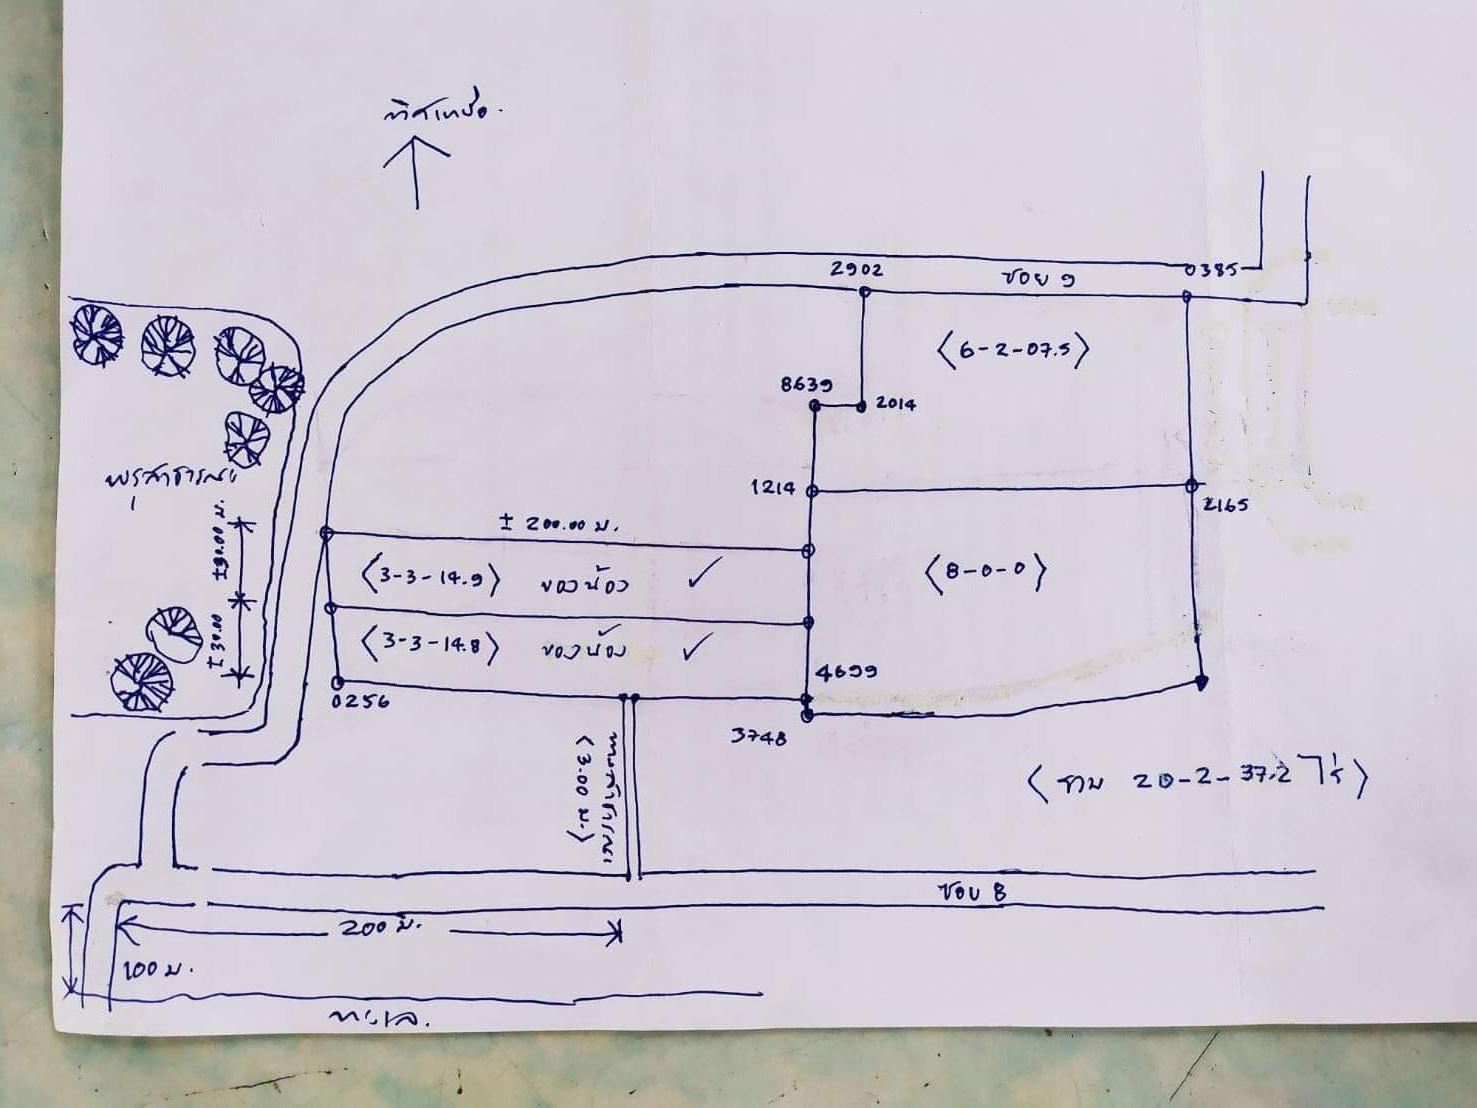 ทิศเหนือ.
2902
ซอย 9
0385
〈6-2-07.5〉
8639
2014
พรุสาธารณะ
1214
2165
± 200.00 ม.
±30.00 ม.
〈3-3-14.9〉 ของน้อง ✓
〈8-0-0〉
±30.00
〈3-3-14.8〉 ของน้อง ✓
4699
0256
3748
ทางสาธารณะ
〈3.00 ม.〉
〈รวม 20-2-37.2 ไร่〉
ซอย 8
200 ม.
100 ม.
ทะเล.